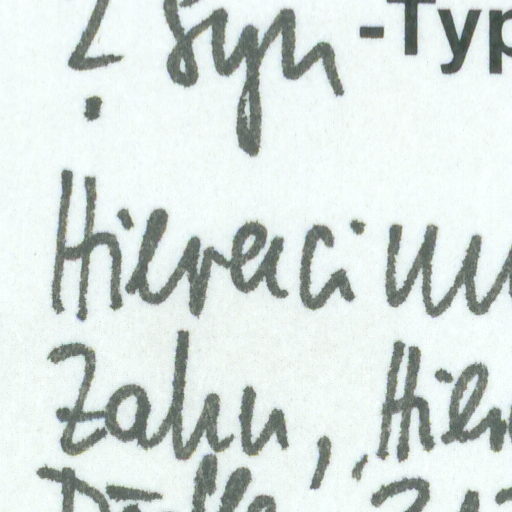 ? Syn -Typ
Hieracium
Zahn, Hier